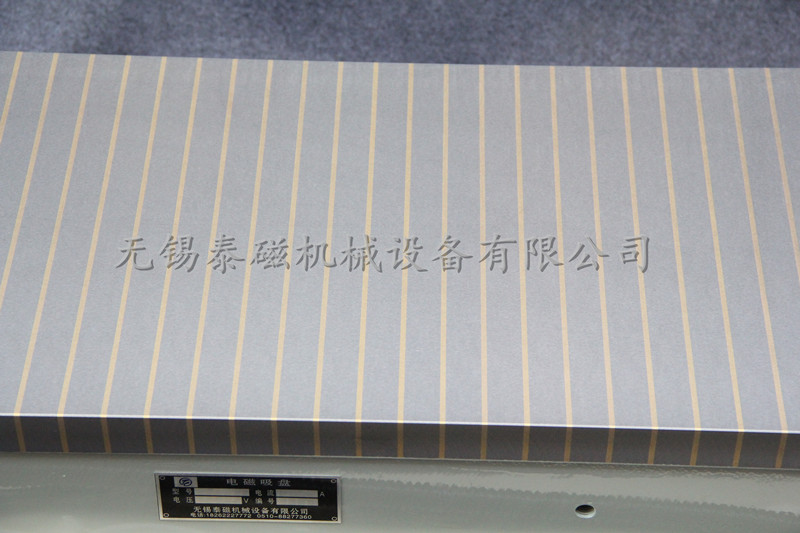 无锡泰磁机械设备有限公司
电磁吸盘
型号 电流 A
电压 V 编号
无锡泰磁机械设备有限公司
电话:18262227772 0510-88277360